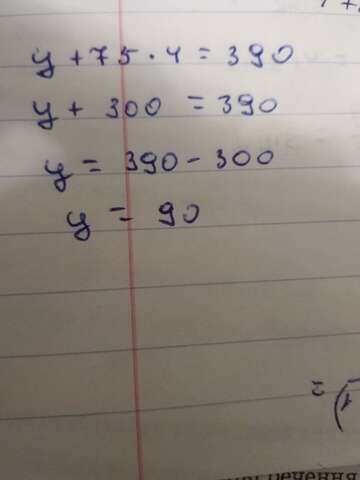 y + 75 · 4 = 390
y + 300 = 390
y = 390 - 300
y = 90
=